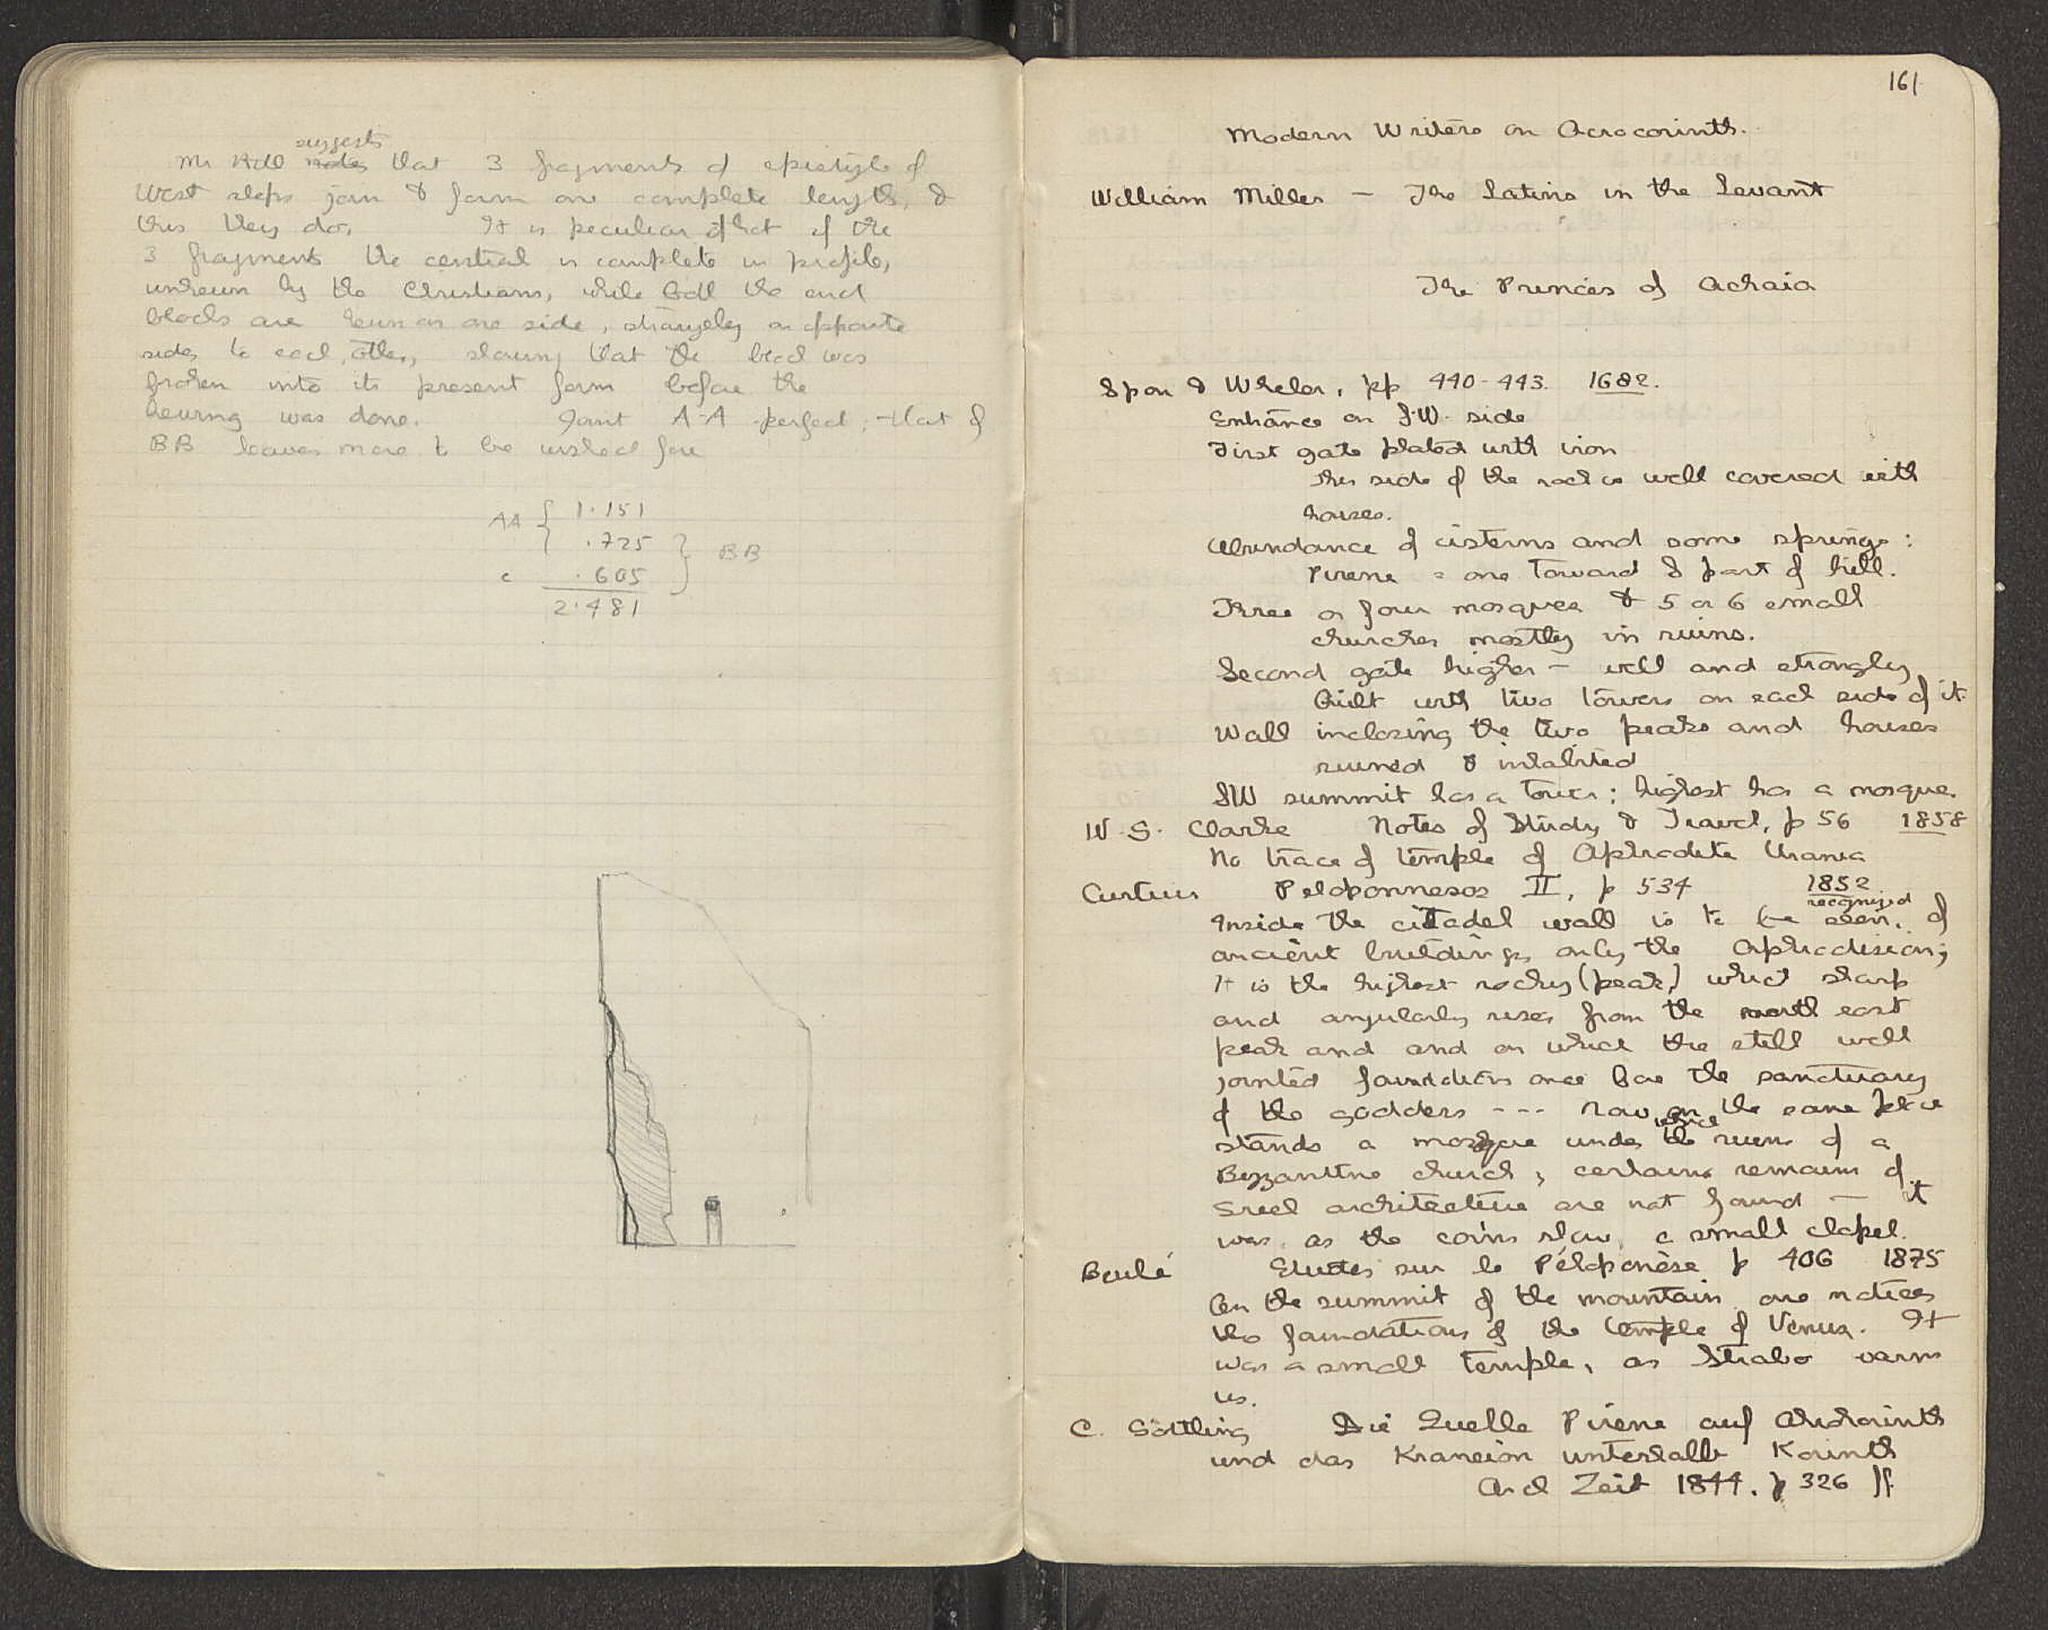 suggests
Mr Hill notes that 3 fragments of epistyle of
West steps join & form one complete length, &
this they do. It is peculiar that of the
3 fragments the central is complete in profile,
unhewn by the Christians, while both the end
blocks are hewn on one side, strangely on opposite
sides to each other, showing that the block was
broken into its present form before the
hewing was done. Joint A-A perfect, that of
BB leaves more to be wished for
AA { 1.151
.725 } BB
c .605
2.481
161
Modern Writers on Acrocorinth.
William Miller — The Latins in the Levant
The Princes of Achaia
Spon & Wheler, pp 440-443. 1682.
Entrance on S.W. side
First gate plated with iron
This side of the rock is well covered with
houses.
Abundance of cisterns and some springs:
Pirene = one toward S part of hill.
Three or four mosques & 5 or 6 small
churches mostly in ruins.
Second gate higher — well and strongly
built with two towers on each side of it.
Wall inclosing the two peaks and houses
ruined & inhabited
SW summit has a tower; highest has a mosque.
W. S. Clarke Notes of Study & Travel, p 56 1858
No trace of temple of Aphrodite Urania
Curtius Peloponnesos II, p 534 1852
recognized
Inside the citadel wall is to be seen, of
ancient buildings only the Aphrodision;
It is the highest rocky (peak) which sharp
and angularly rises from the north east
peak and and on which the still well
jointed foundations once bore the sanctuary
of the goddess --- Now on the same place
which
stands a mosque under the ruins of a
Byzantine church; certain remains of
Greek architecture are not found — it
was, as the coins show, a small chapel.
Beulé Etudes sur le Péloponèse p 406 1875
On the summit of the mountain one notices
the foundations of the temple of Venus. It
was a small temple, as Strabo warns
us.
C. Göttling Die Quelle Pirene auf Akrokorinth
und das Kraneion unterhalb Korinth
Arch Zeit 1844. p 326 ff.